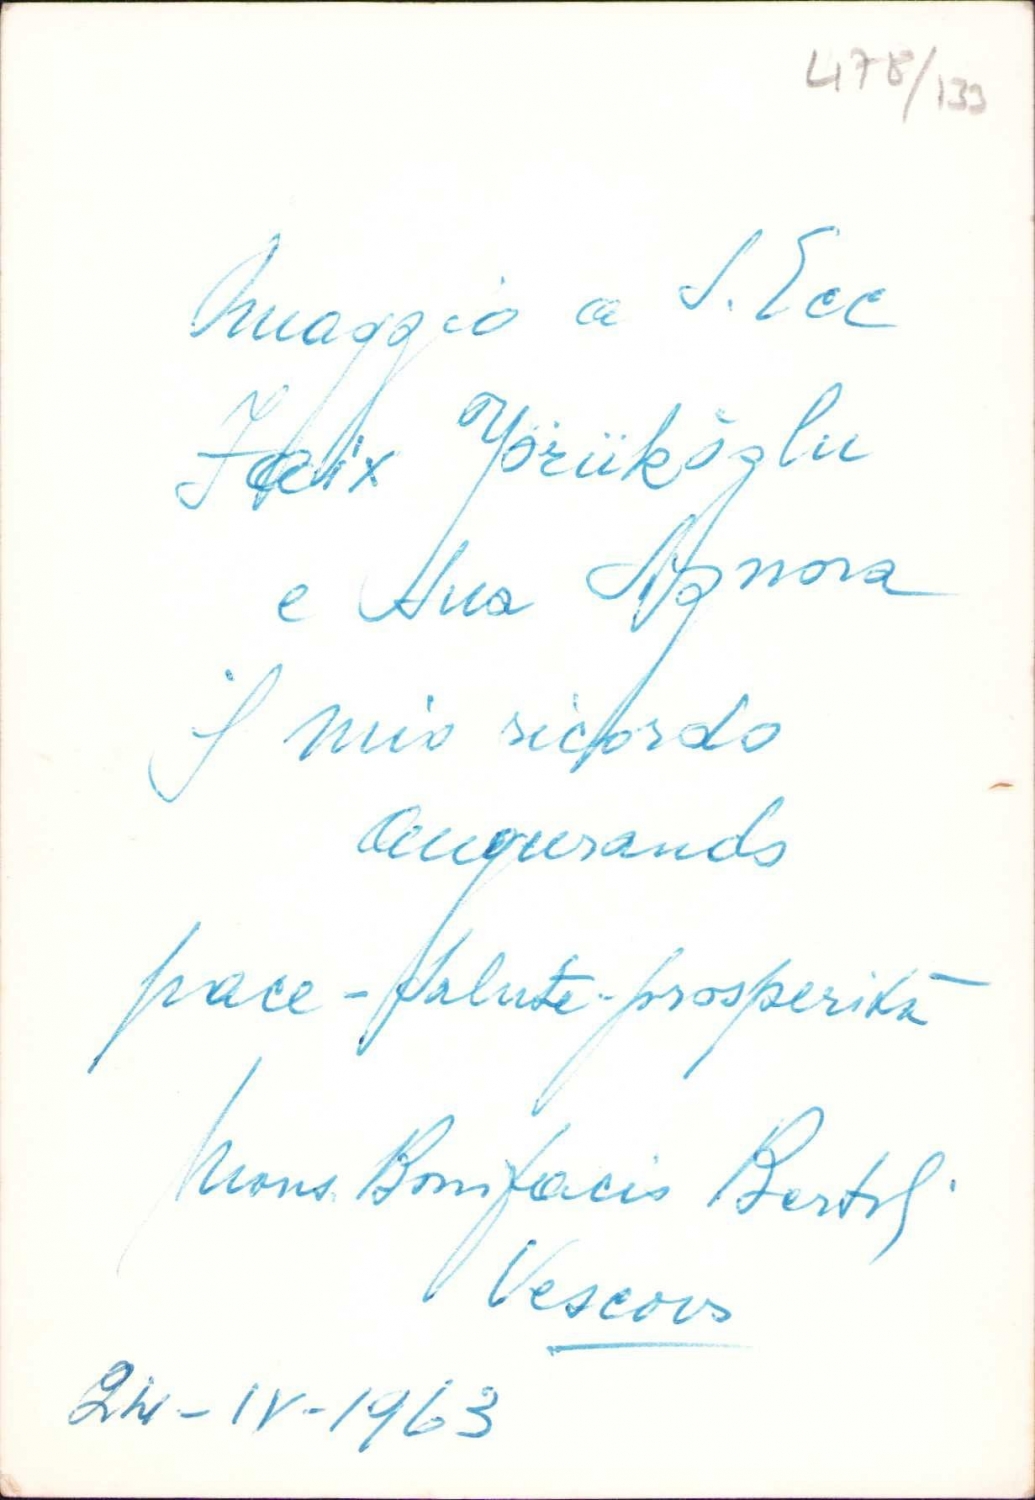 478/133
Omaggio a S. Ecc
Faix Yörükōğlu
e Sua Signora
Il mio ricordo
augurando
pace - salute - prosperità
Mons. Bonifacio
Vescovo
24-IV-1963